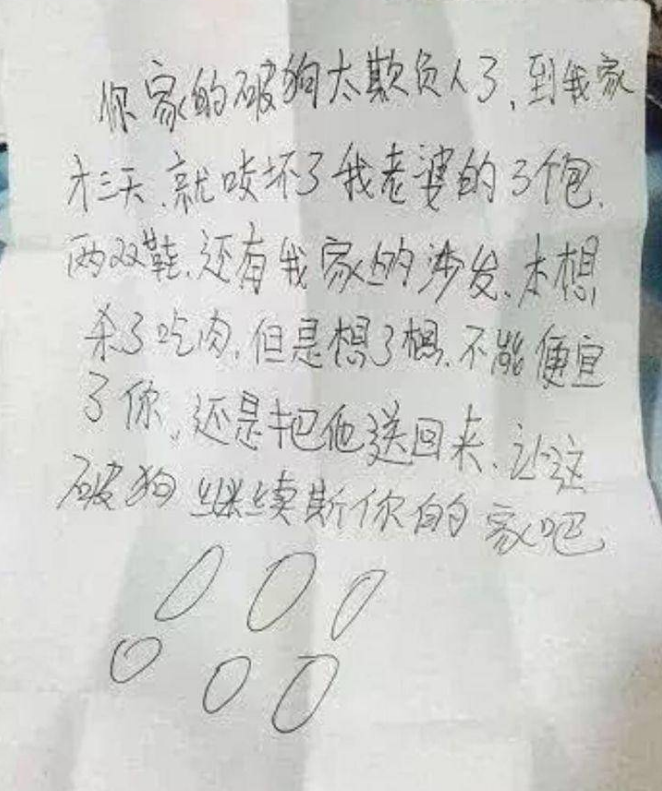 你家的破狗太欺负人了、到我家
才三天、就咬坏了我老婆的3个包、
两双鞋、还有我家的沙发、本想
杀了吃肉、但是想了想、不能便宜
了你、还是把他送回来、让这
破狗继续斯你的家吧